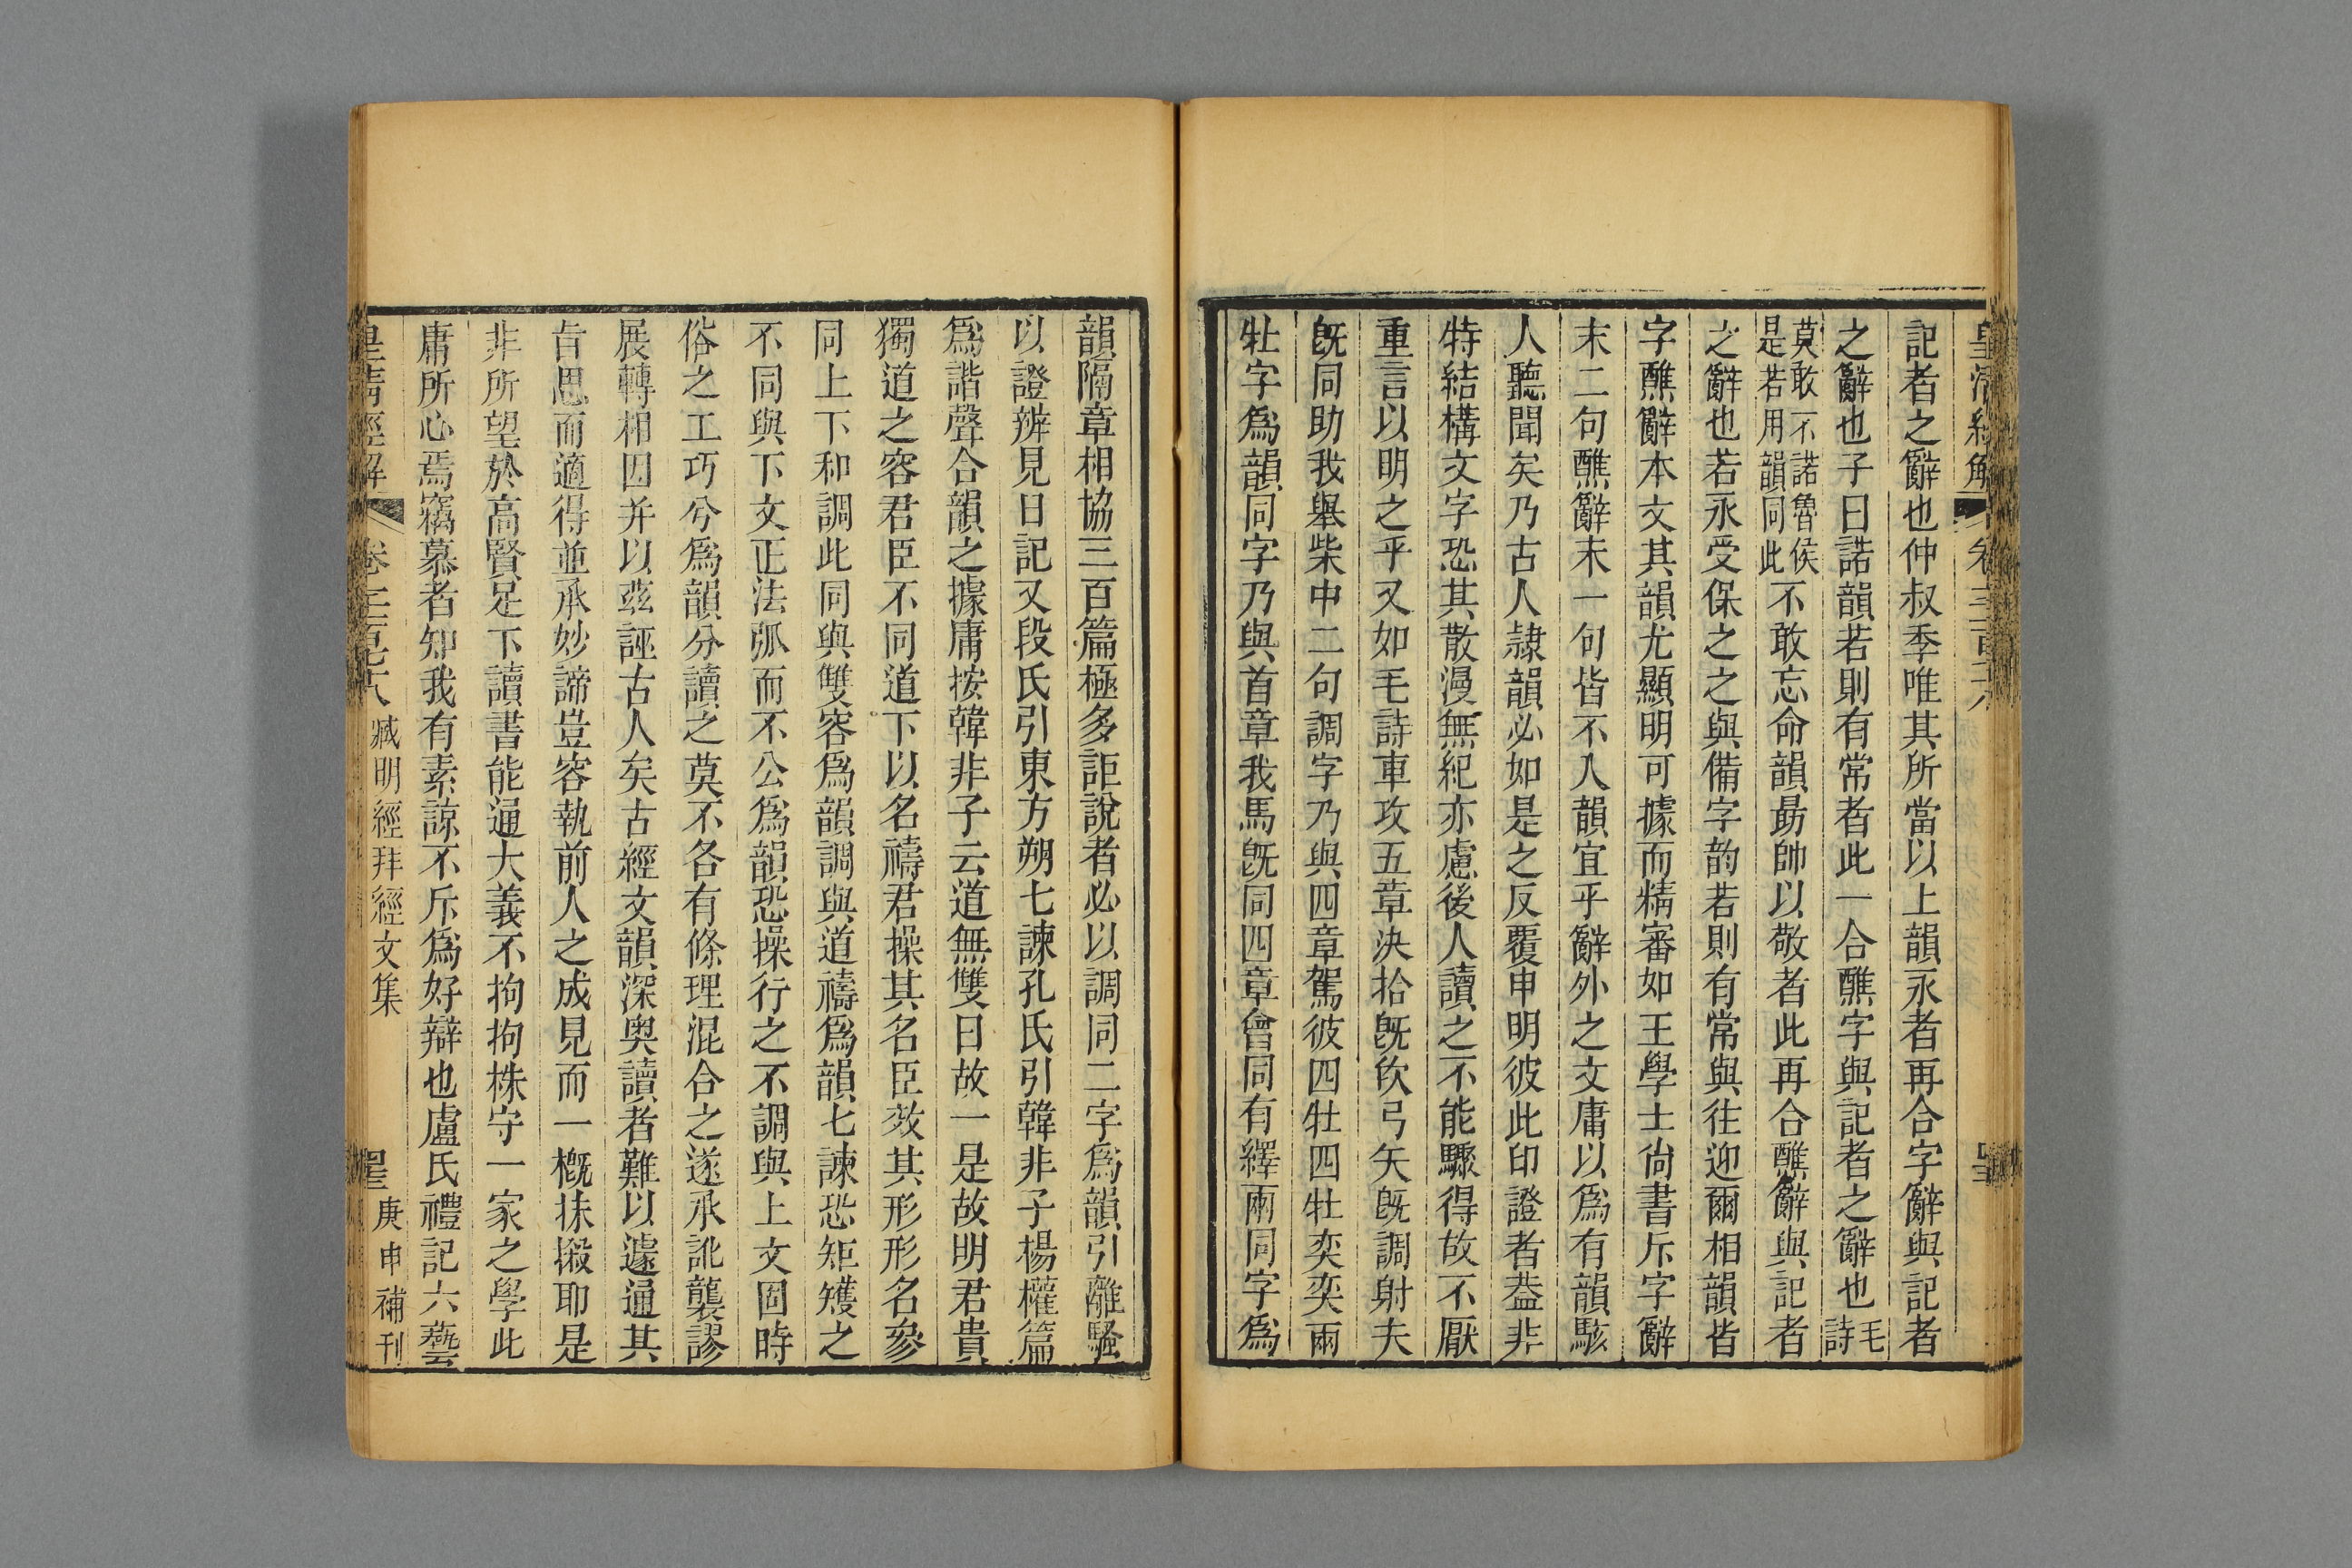 記者之辭也仲叔季唯其所當以上韻永者再合字辭與記者
之辭也子曰諾韻若則有常者此一合醮字與記者之辭也毛詩
莫敢不諾魯侯是若用韻同此不敢忘命韻勗帥以敬者此再合醮辭與記者
之辭也若永受保之之與備字韵若則有常與往迎爾相韻皆
字醮辭本文其韻尤顯明可據而精審如王學士尙書斥字辭
末二句醮辭末一句皆不入韻宜乎辭外之文庸以爲有韻駭
人聽聞矣乃古人隷韻必如是之反覆申明彼此印證者葢非
特結構文字恐其散漫無紀亦慮後人讀之不能驟得故不厭
重言以明之乎又如毛詩車攻五章決拾旣佽弓矢旣調射夫
旣同助我舉柴中二句調字乃與四章駕彼四牡四牡奕奕兩
牡字爲韻同字乃與首章我馬旣同四章會同有繹兩同字爲
韻隔章相協三百篇極多詎說者必以調同二字爲韻引離騷
以證辨見日記又段氏引東方朔七諫孔氏引韓非子楊權篇
爲諧聲合韻之據庸按韓非子云道無雙日故一是故明君貴
獨道之容君臣不同道下以名禱君操其名臣效其形形名參
同上下和調此同與雙容爲韻調與道禱爲韻七諫恐矩矱之
不同與下文正法弧而不公爲韻恐操行之不調與上文固時
俗之工巧兮爲韻分讀之莫不各有條理混合之遂承訛襲謬
展轉相因并以茲誣古人矣古經文韻深奥讀者難以遽通其
旨思而適得並承妙諦豈容執前人之成見而一槪抹摋耶是
非所望於高賢足下讀書能通大義不拘拘株守一家之學此
庸所心焉竊慕者知我有素諒不斥爲好辯也盧氏禮記六藝
皇淸經解 卷 臧明經拜經文集 庚申補刊